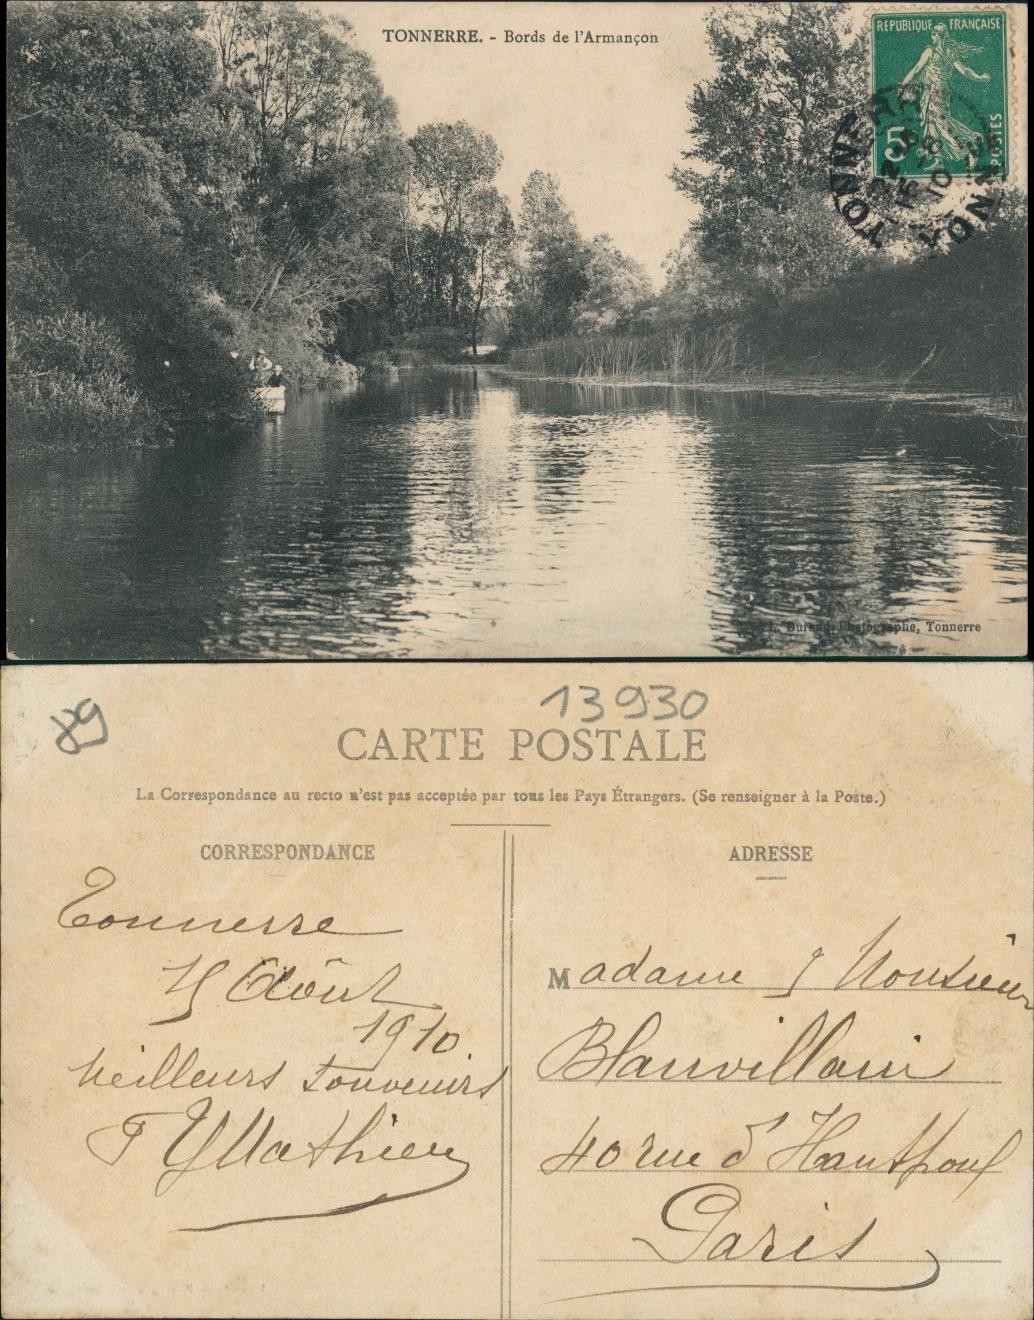 TONNERRE. - Bords de l'Armançon
REPUBLIQUE FRANÇAISE
5
POSTES
TONNERRE
16
10
YONNE
Photographe, Tonnerre
89
13930
CARTE POSTALE
La Correspondance au recto n'est pas acceptée par tous les Pays Étrangers. (Se renseigner à la Poste.)
CORRESPONDANCE
Tonnerre
15 Août
1910
Meilleurs souvenirs
Mathieu
ADRESSE
Madame & Monsieur
Blanvillain
40 rue d'Hautpoul
Paris